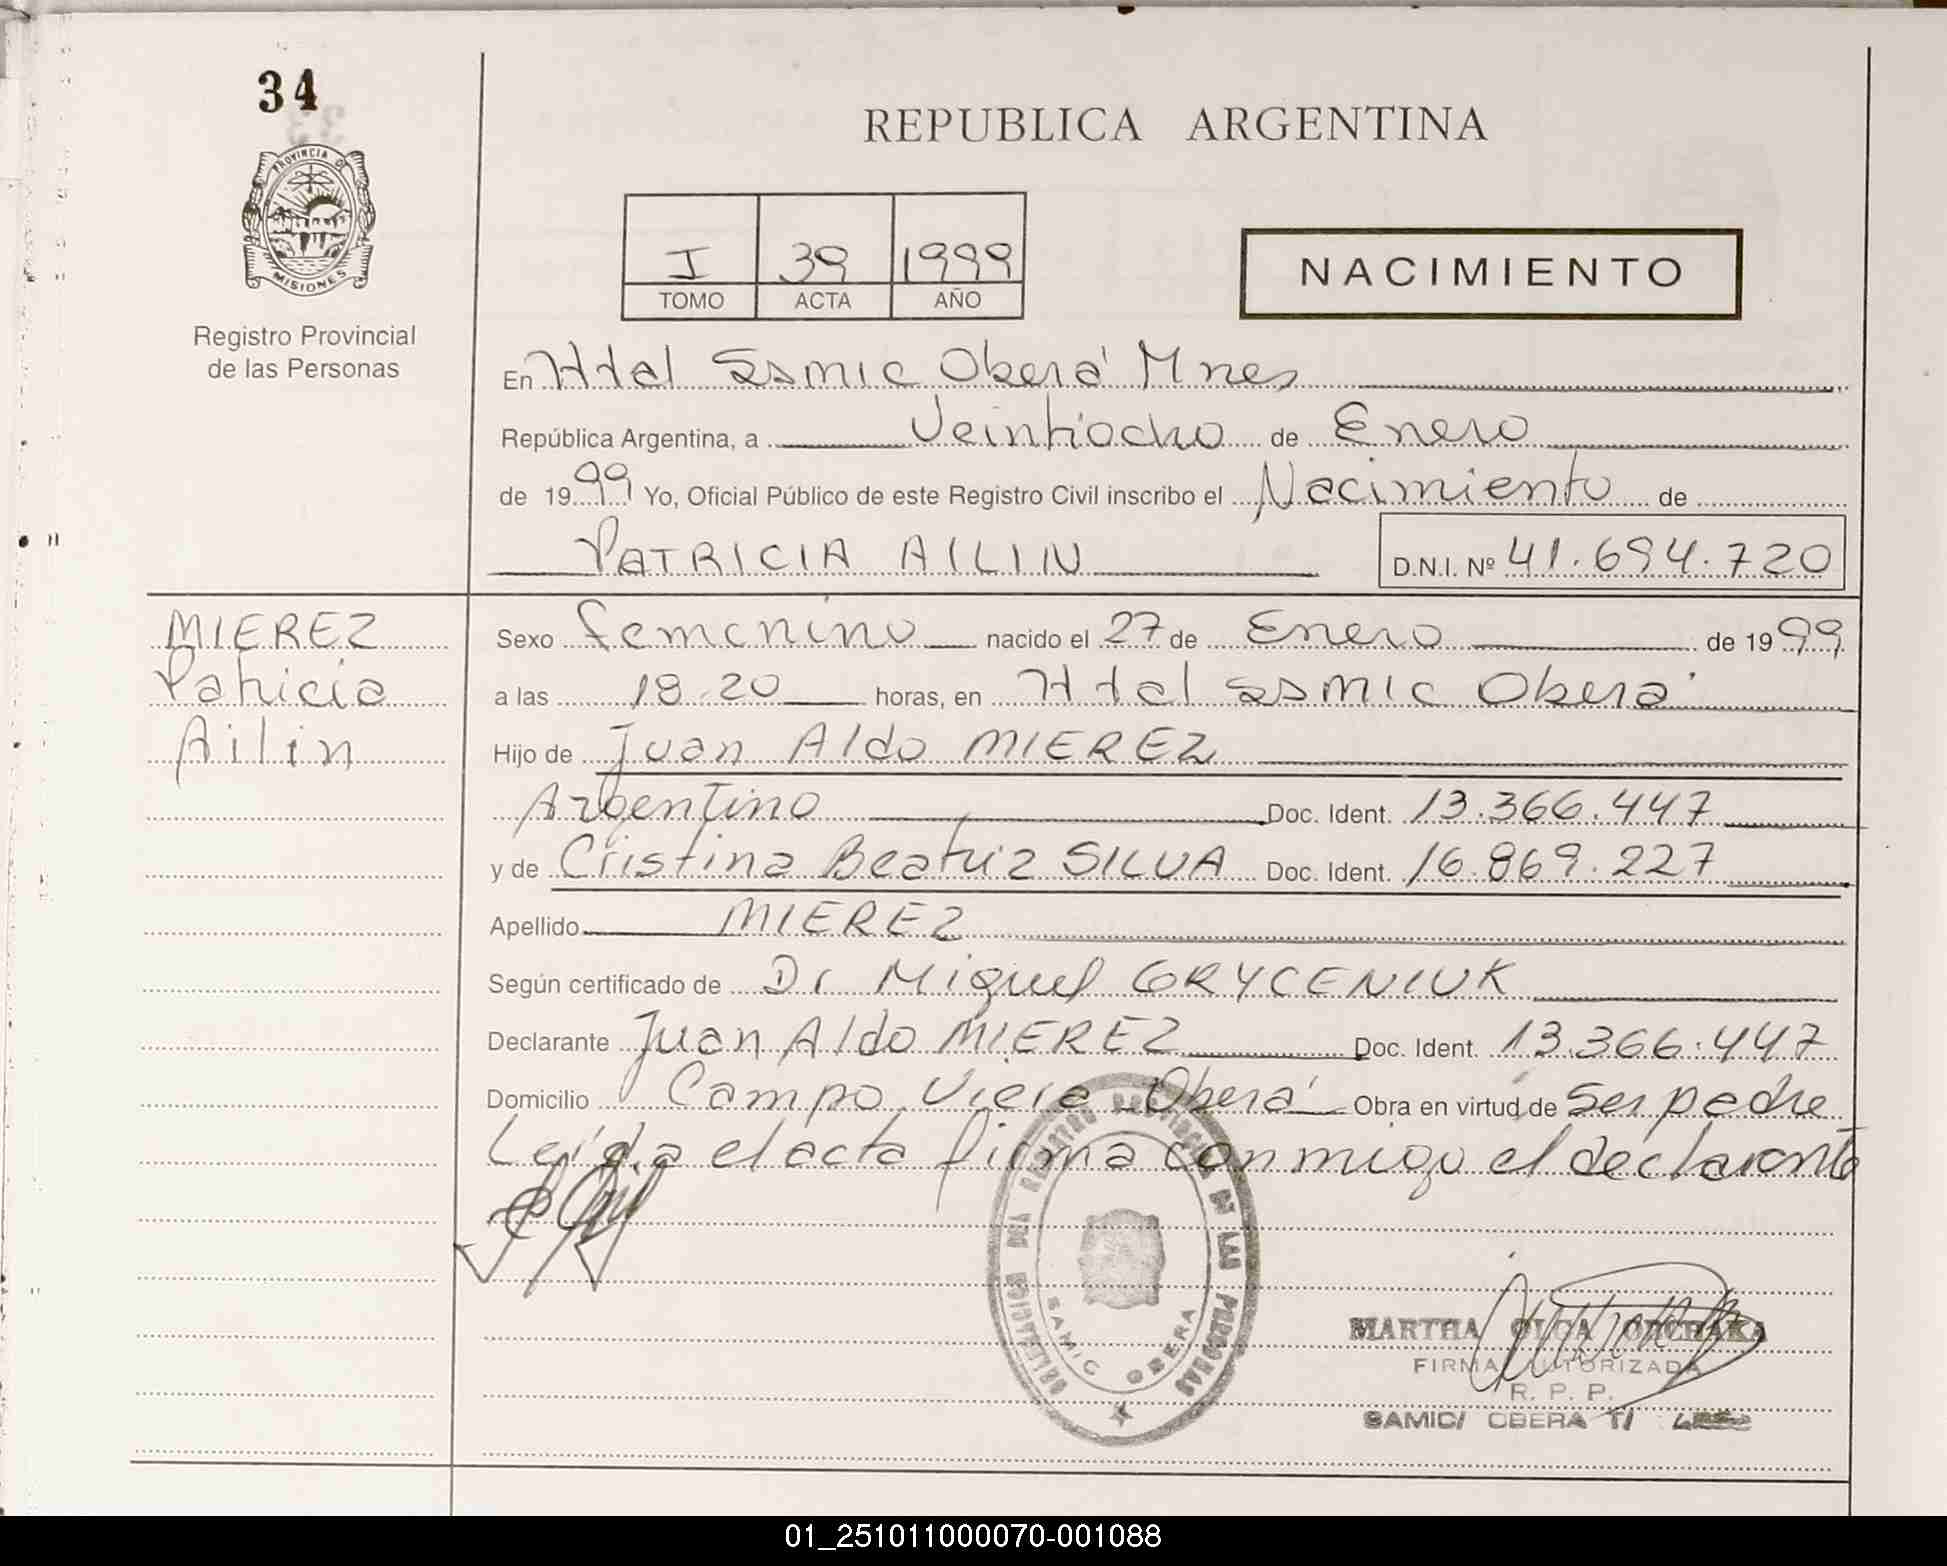 34
PROVINCIA D
MISIONES
Registro Provincial
de las Personas
REPUBLICA ARGENTINA
I 39 1999
TOMO ACTA AÑO
NACIMIENTO
En Htal Samic Oberá Mnes
República Argentina, a Veintiocho de Enero
de 1999 Yo, Oficial Público de este Registro Civil inscribo el Nacimiento de
PATRICIA AILIN D.N.I. Nº 41.694.720
MIEREZ
Patricia
Ailin
Sexo femenino nacido el 27 de Enero de 1999
a las 18.20 horas, en Htal Samic Oberá
Hijo de Juan Aldo MIEREZ
Argentino Doc. Ident. 13.366.447
y de Cristina Beatriz SILVA Doc. Ident. 16.869.227
Apellido MIEREZ
Según certificado de Dr Miguel GRYCENIUK
Declarante Juan Aldo MIEREZ Doc. Ident. 13.366.447
Domicilio Campo Viera Oberá Obra en virtud de Ser padre
Leída el acta firma conmigo el declarante
DELEGACION DEL REGISTRO PROVINCIAL DE LAS PERSONAS
SAMIC OBERA
MARTHA OLGA
FIRMA AUTORIZADA
R. P. P.
SAMIC/ OBERA T/
01_251011000070-001088